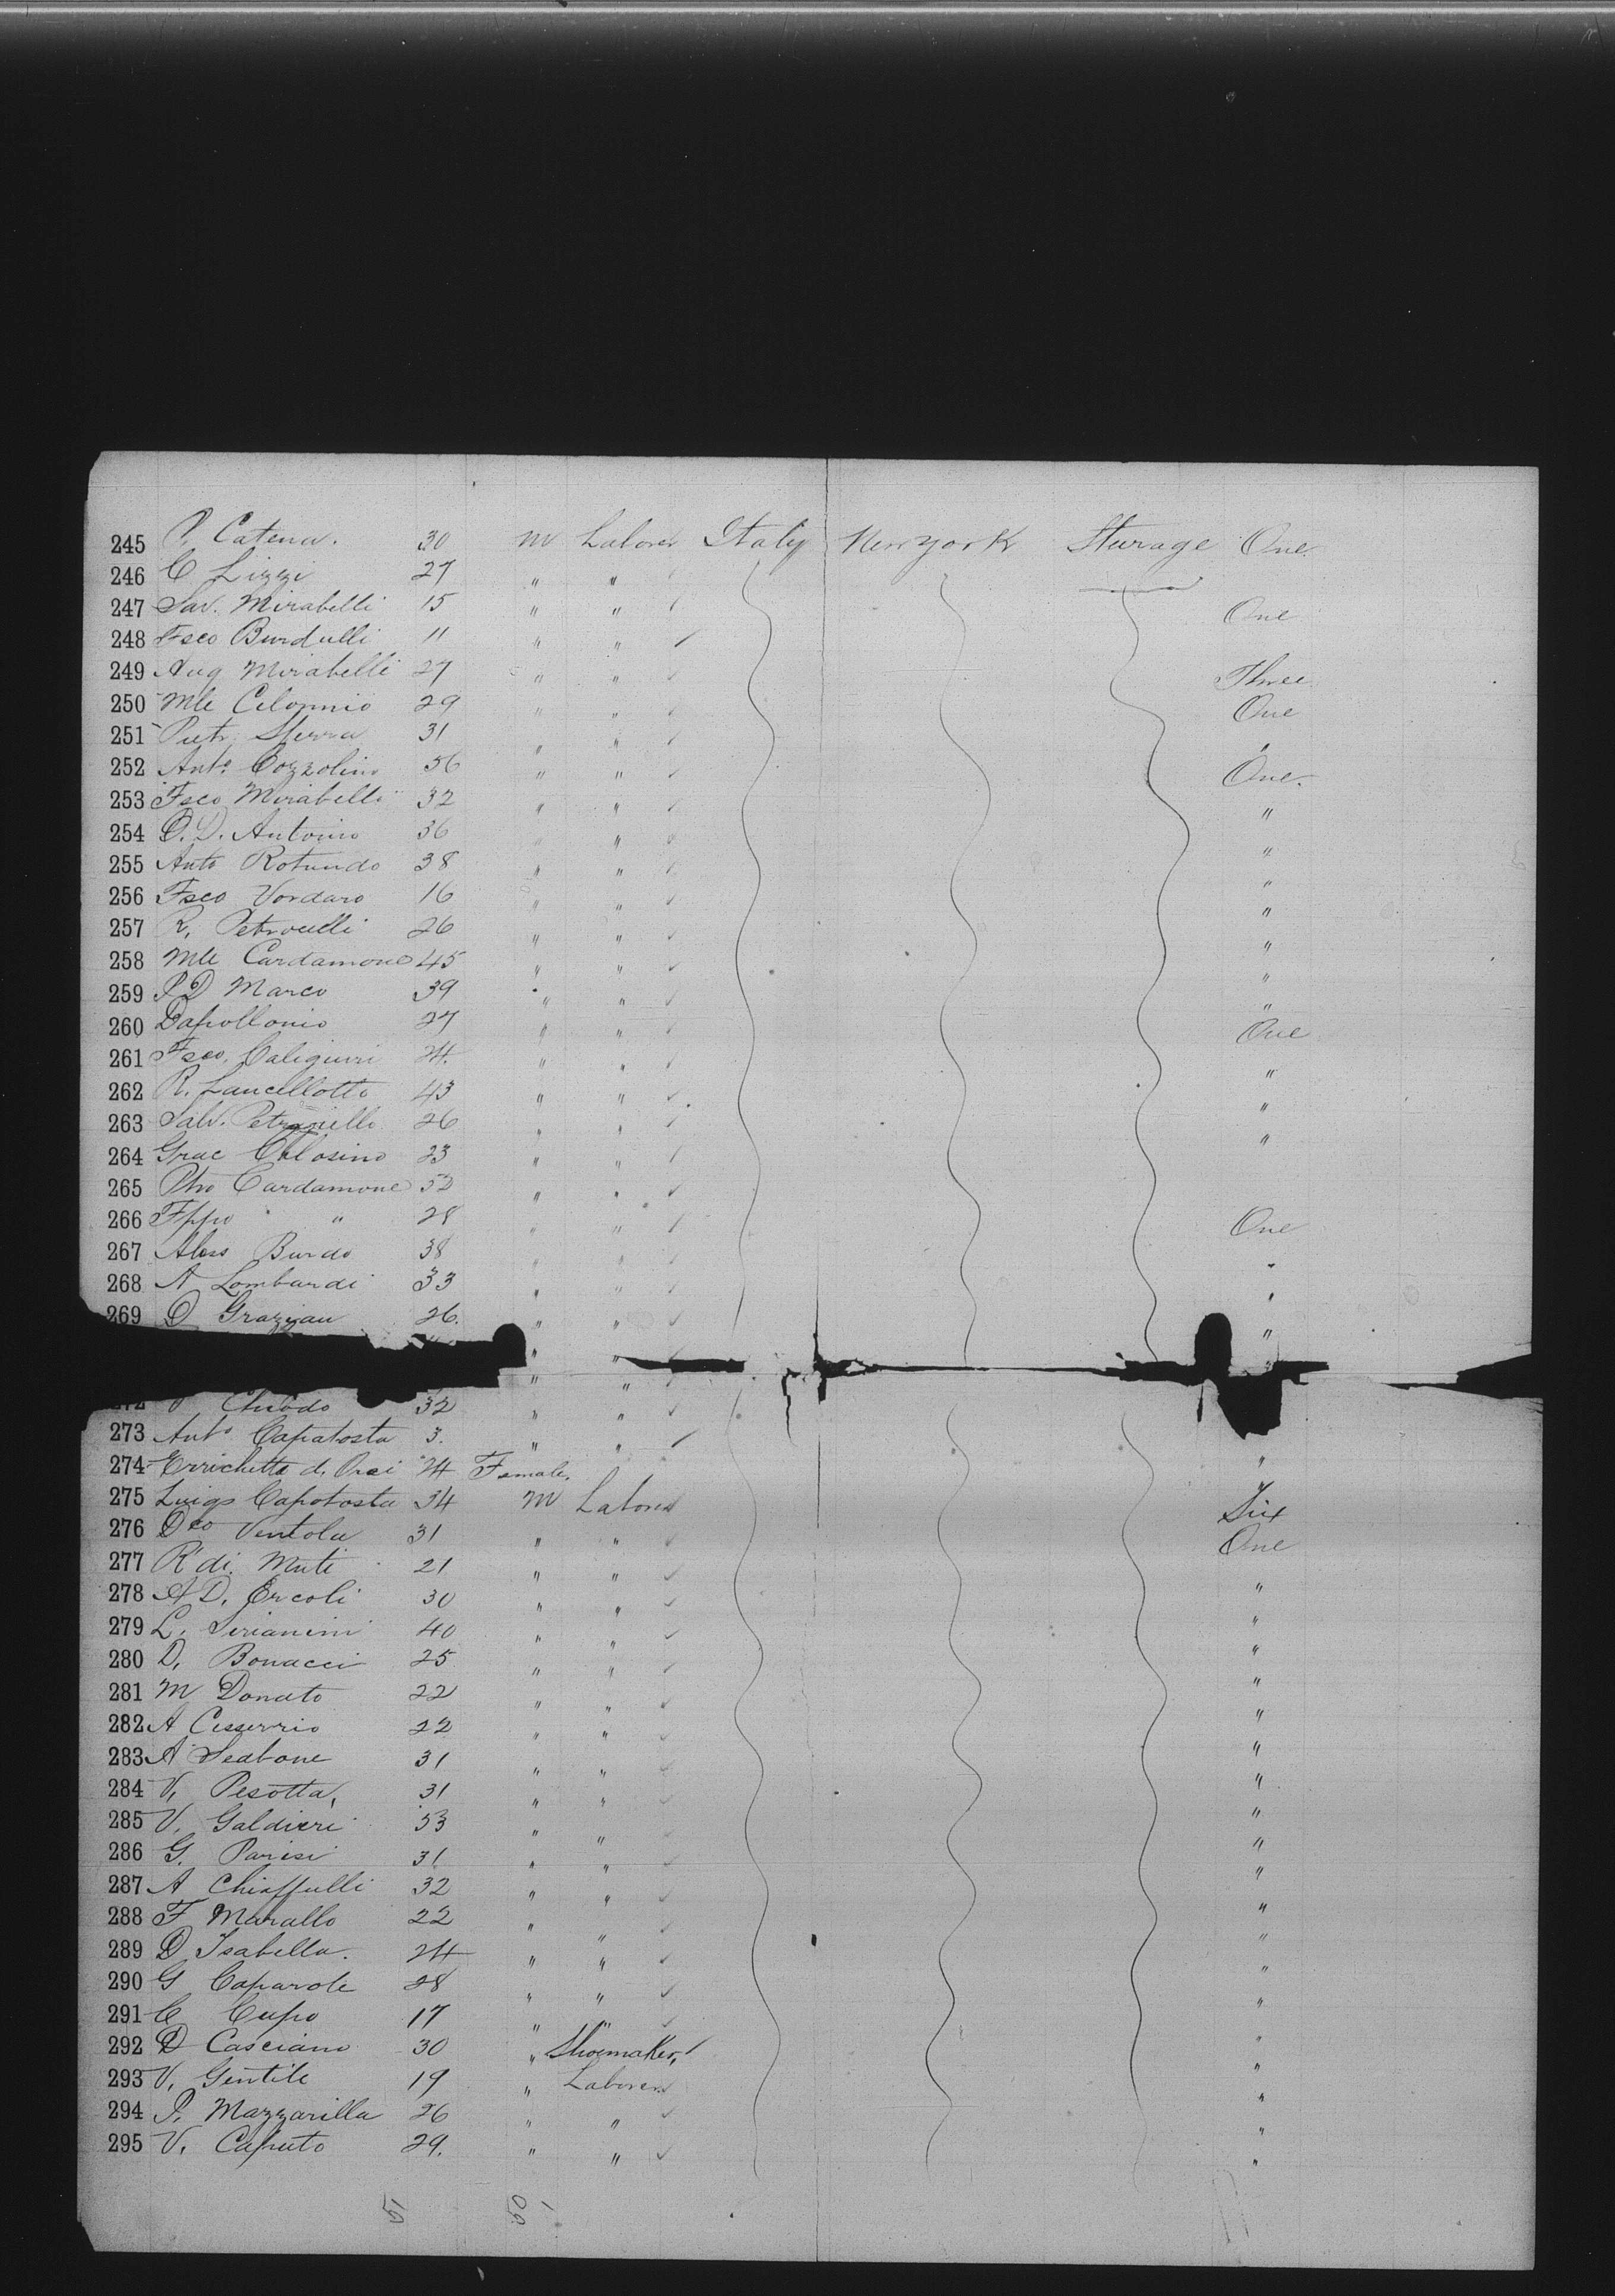 245 P. Catena. 30 m Laborer Italy New york Sturage One.
246 C Lizzi 27 " "
247 Sav. Mirabelli 15 " " One
248 Fsco Burdulli 11 " "
249 Aug Mirabelli 27 " " Three
250 Mle Celonnio 29 " " One
251 Pietr. Sferra 31 " " "
252 Anto. Cozzolino 56 " " One.
253 Fsco Mirabelli 32 " " "
254 O. D. Antonio 36 " " "
255 Anto Rotundo 38 " " "
256 Fsco Vordaro 16 " " "
257 R. Petrocelli 26 " " "
258 Mle Cardamone 45 " " "
259 P D Marco 39 " " "
260 Dapollonio 27 " " One
261 Fsco. Caligiuri 24. " " "
262 R. Lancellotto 43 " " "
263 Salv. 26 " " "
264 Grac Colosimo 23 " "
265 Ptro Cardamone 52 " "
266 Fppo " 28 " " One
267 Aless Burdo 38 " " "
268 A Lombardi 33 " " "
269 D Grazian 26. " " "
" "
" "
272 Chiodo 32 " "
273 Anto Capatosta 3. " " "
274 Errichetta d. 24 Female.
275 Luigo Capotosta 34 m Laborer Six
276 Dco Ventola 31 " " One
277 R di. Muti 21 " " "
278 A D. Ercoli 30 " " "
279 L. Sirianini 40 " " "
280 D. Bonacci 25 " " "
281 M Donato 22 " " "
282 A Cesserrio 22 " " "
283 A Scabone 31 " " "
284 V. Pesotta, 31 " " "
285 V. Galdieri 53 " " "
286 G. Parisi 31 " " "
287 A Chiaffulli 32 " " "
288 F Marallo 22 " " "
289 D Isabella. 24 " " "
290 G Caparole 28 " " "
291 C Cupo 17 " " "
292 D Casciano 30 " Shoemaker, "
293 V. Gentile 19 " Laborer "
294 P. Mazzarilla 26 " " "
295 V. Caputo 29. " " "
51 50 1